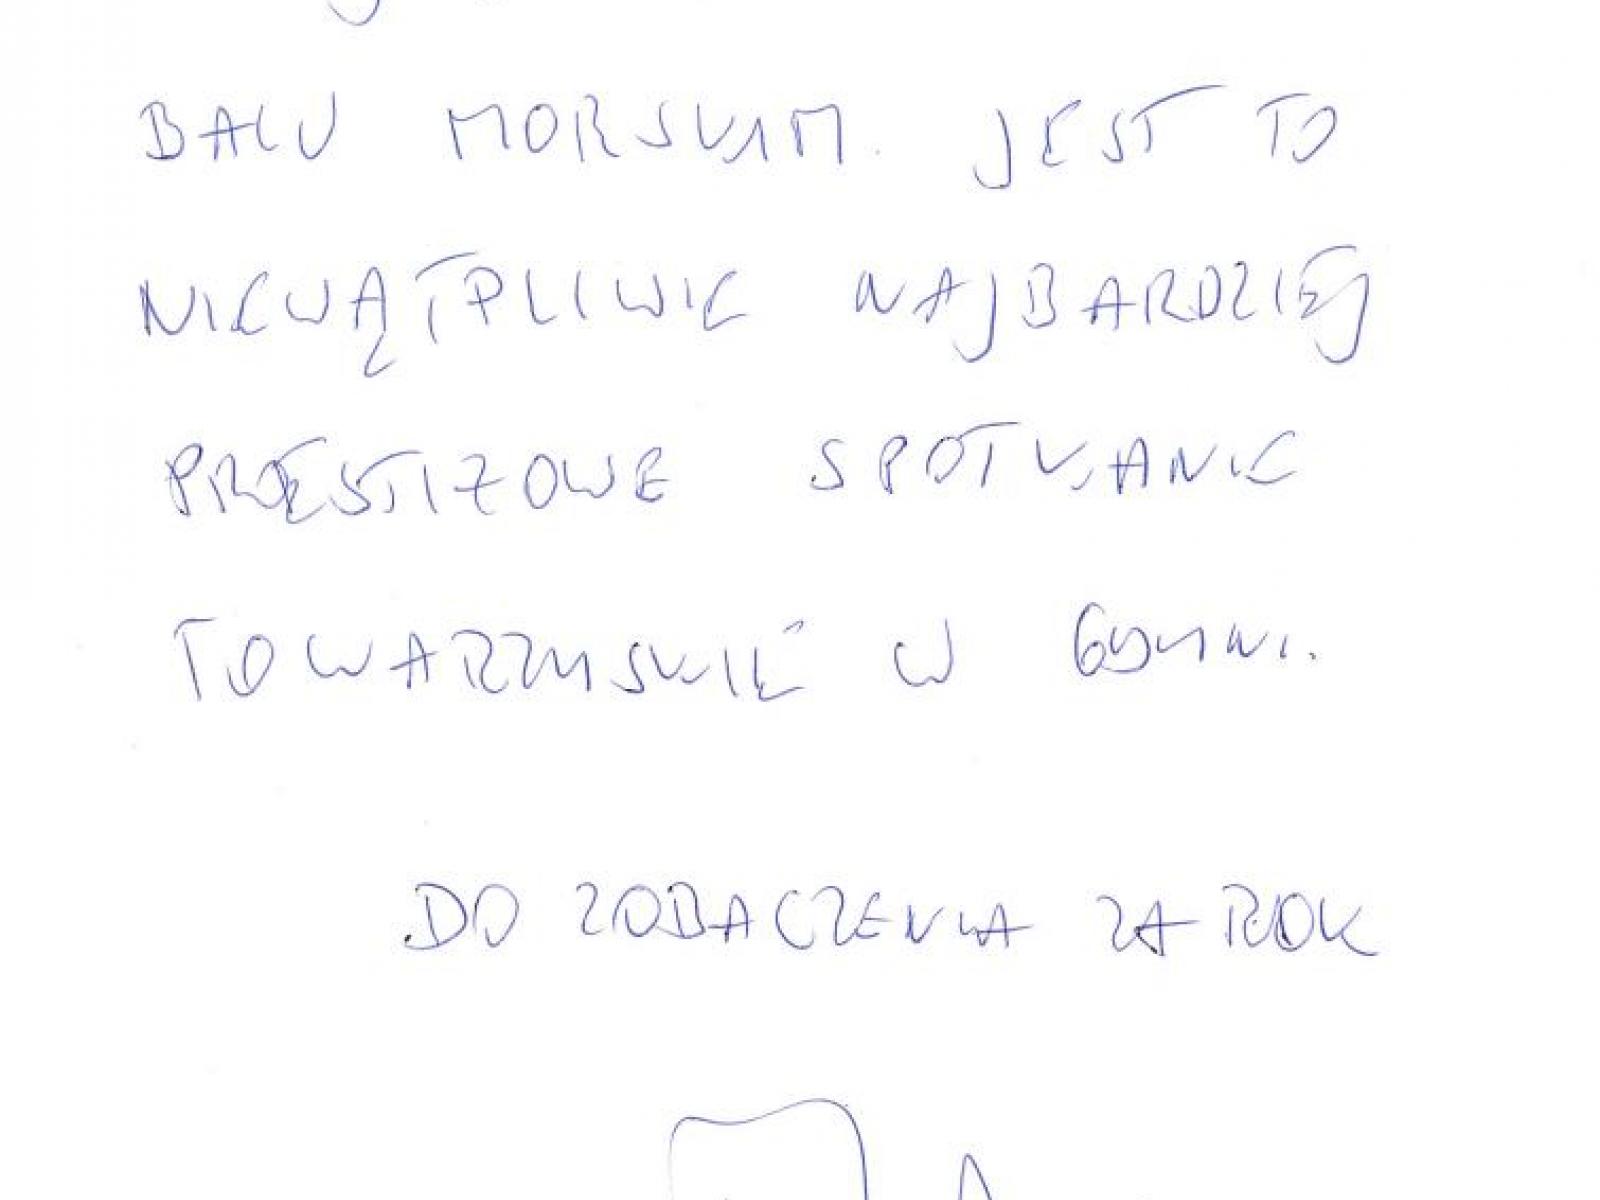 BALU MORSKIM. JEST TO
NIEWĄTPLIWIE NAJBARDZIEJ
PRESTIZOWE SPOTKANIE
TOWARZYSKIE W GDYNI.
DO ZOBACZENIA ZA ROK